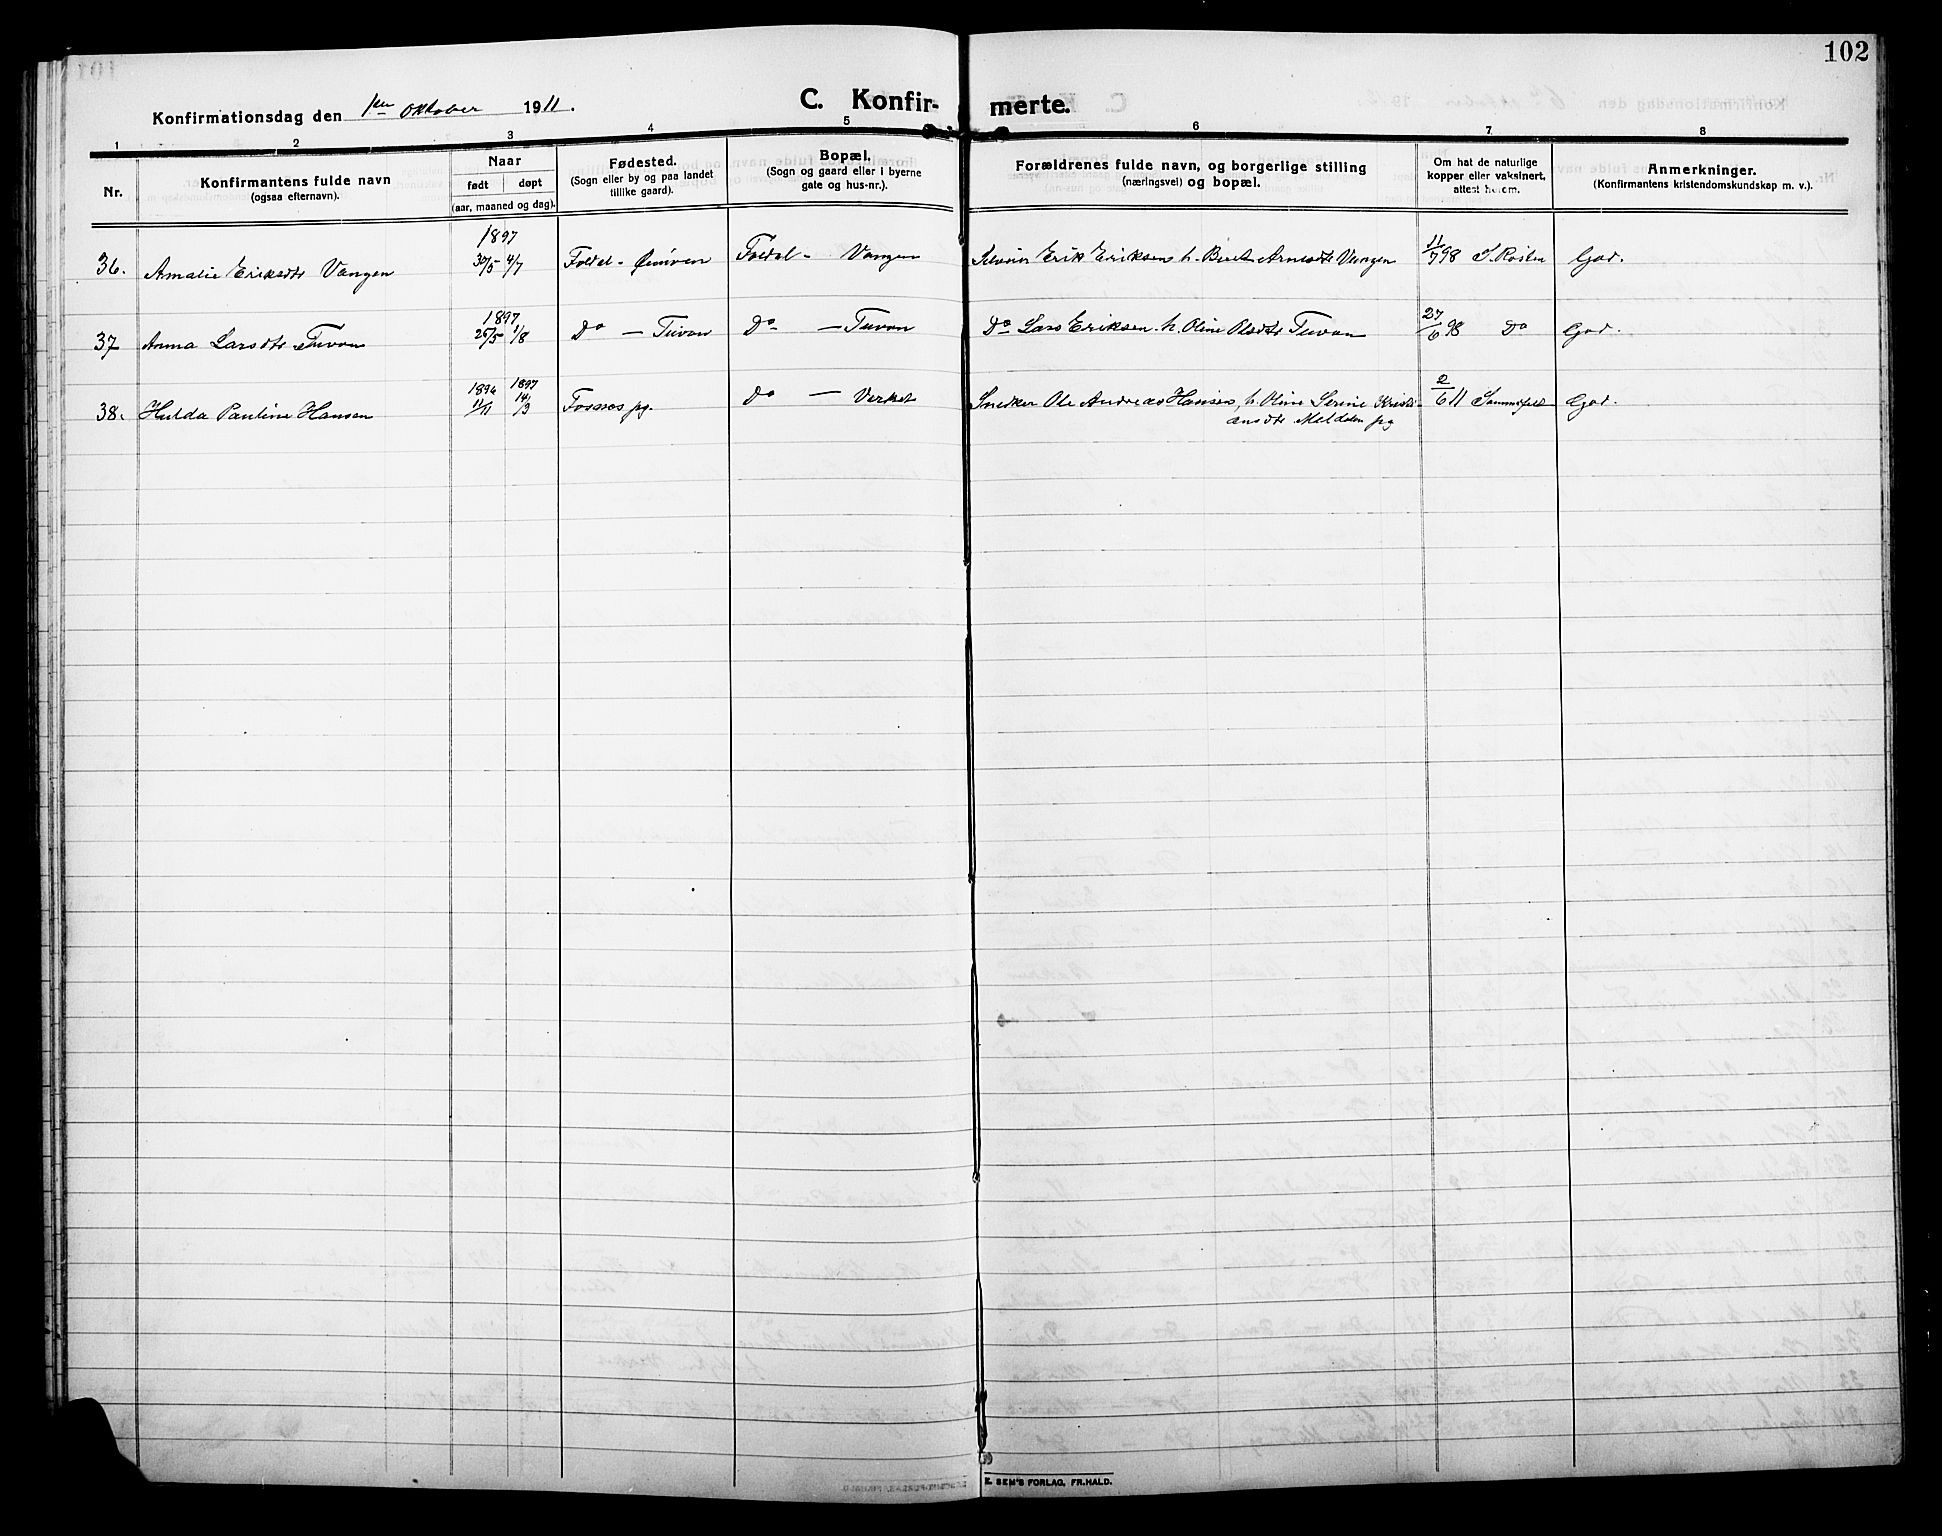 102
Konfirmationsdag den 1ste Oktober 1911.
C. Konfir- merte.
1 2 3 4 5 6 7 8
Nr.
Konfirmantens fulde navn
(ogsaa efternavn).
Naar
født døpt
(aar, maaned og dag).
Fødested.
(Sogn eller by og paa landet
tillike gaard).
Bopæl.
(Sogn og gaard eller i byerne
gate og hus-nr.).
Forældrenes fulde navn, og borgerlige stilling
(næringsvei) og bopæl.
Om hat de naturlige
kopper eller vaksinert,
attest herom.
Anmerkninger.
(Konfirmantens kristendomskundskap m. v.).
1897
36. Amalie Eriksdtr Vangen 30/5 4/7 Foldal - Foldal - Vangen Erik Eriksen h. Berit Arnesdtr Vangen 11/7 98 Røsten God.
1897
37 Anna Larsdtr Tuvan 25/5 1/8 Do — Tuvan Do — Tuvan Do Lars Eriksen h. Oline Olsdtr Tuvan 27/6 98 Do God.
1896 1897
38. Hulda Pauline Hansen 11/11 14/3 Fosnes pg. Do — Verket Snedker Ole Andreas Hansen, h. Oline Serine Kristi-
ansdtr Meldalen pg
2/6 11 Sommerfeldt God.
E. SEM'S FORLAG, FR.HALD.